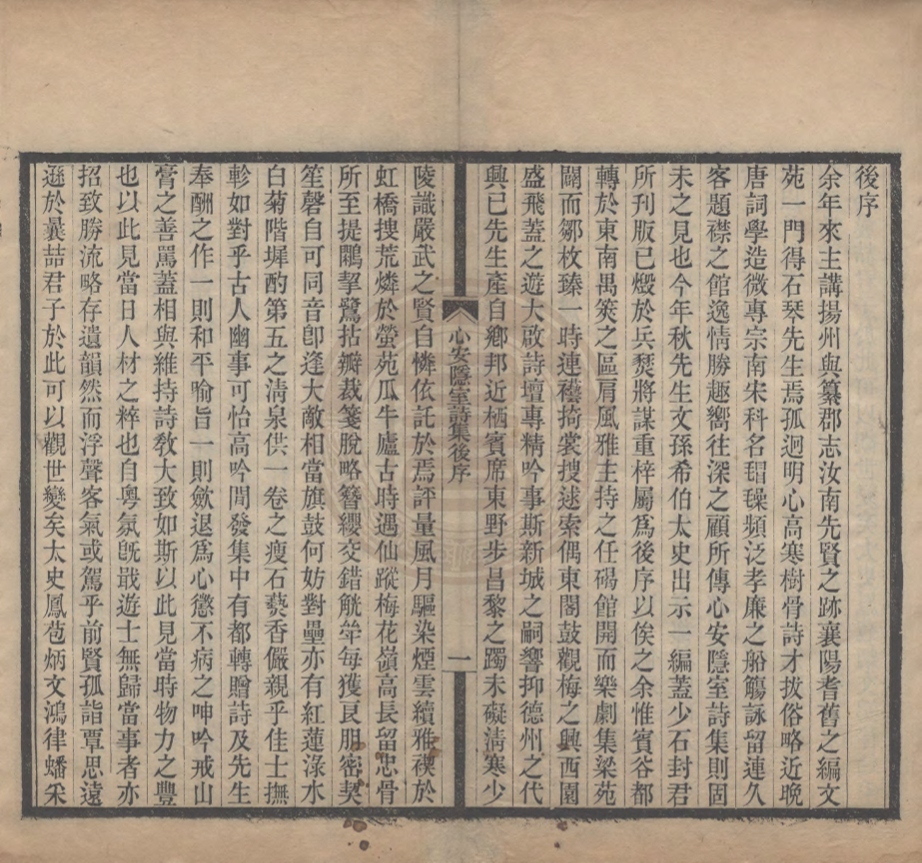 後序
余年來主講揚州與纂郡志汝南先賢之跡襄陽耆舊之編文
苑一門得石琴先生焉孤迥明心高寒樹骨詩才拔俗略近晚
唐詞學造微專宗南宋科名瑁璪頻泛孝廉之船觴詠留連久
客題襟之館逸情勝趣嚮往深之顧所傳心安隱室詩集則固
未之見也今年秋先生文孫希伯太史出示一編蓋少石封君
所刊版已燬於兵燹將謀重梓屬爲後序以俟之余惟賓谷都
轉於東南禺筴之區肩風雅主持之任碣館開而樂劇集梁苑
闢而鄒枚臻一時連襼掎裳搜逑索偶東閣鼓觀梅之興西園
盛飛蓋之遊大啟詩壇專精吟事斯新城之嗣響抑德州之代
興已先生產自鄉邦近栖賓席東野步昌黎之躅未礙淸寒少
心安隱室詩集後序
一
陵識嚴武之賢自憐依託於焉評量風月驅染煙雲續雅禊於
虹橋搜荒燐於螢苑瓜牛廬古時遇仙蹤梅花嶺高長留忠骨
所至提鷳挈鷺拈瓣裁箋脫略簪纓交錯觥斝每獲良朋密契
笙磬自可同音卽逢大敵相當旗鼓何妨對壘亦有紅蓮淥水
白菊階墀酌第五之淸泉供一卷之瘦石藝香儼親乎佳士撫
軫如對乎古人幽事可怡高吟間發集中有都轉贈詩及先生
奉酬之作一則和平喻旨一則斂退爲心懲不病之呻吟戒山
膏之善罵蓋相與維持詩敎大致如斯以此見當時物力之豐
也以此見當日人材之粹也自粵氛旣戢遊士無歸當事者亦
招致勝流略存遺韻然而浮聲客氣或駕乎前賢孤詣覃思遠
遜於曩喆君子於此可以觀世變矣太史鳳苞炳文鴻律蟠采